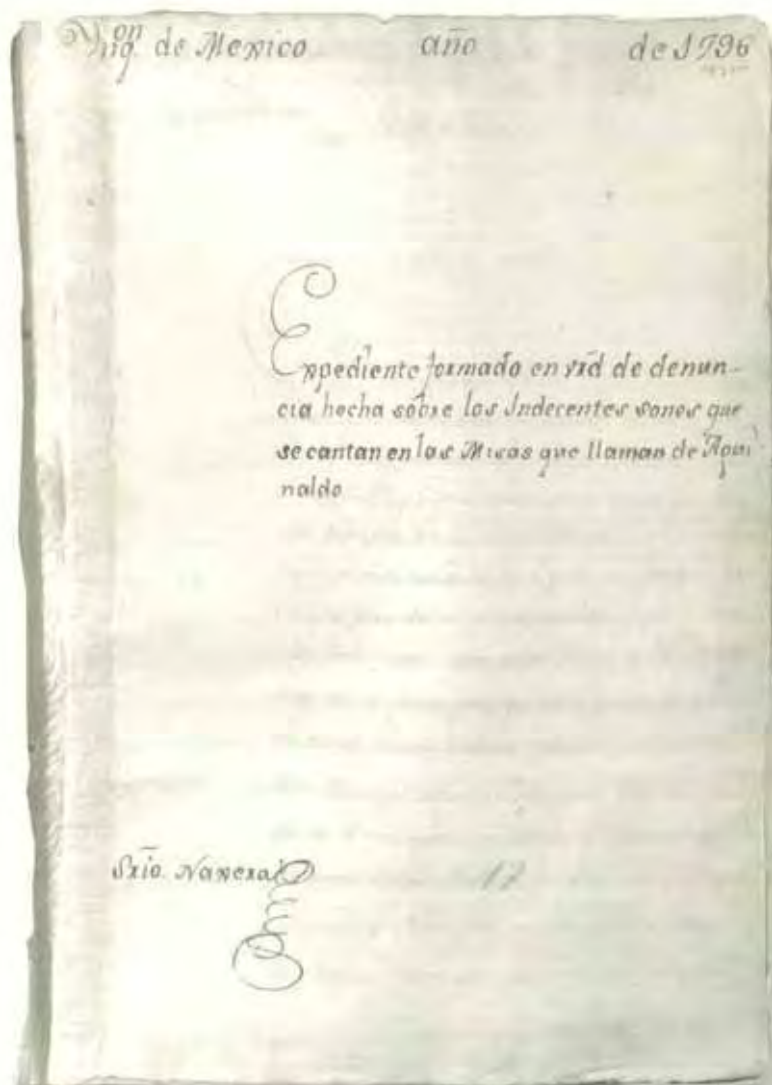 Ynq.on de Mexico año de 1796
Expediente formado en vrd de denun-
cia hecha sobre los Indecentes sones que
se cantan en las Misas que llaman de Agui-
naldo
Srio. Naxera
17